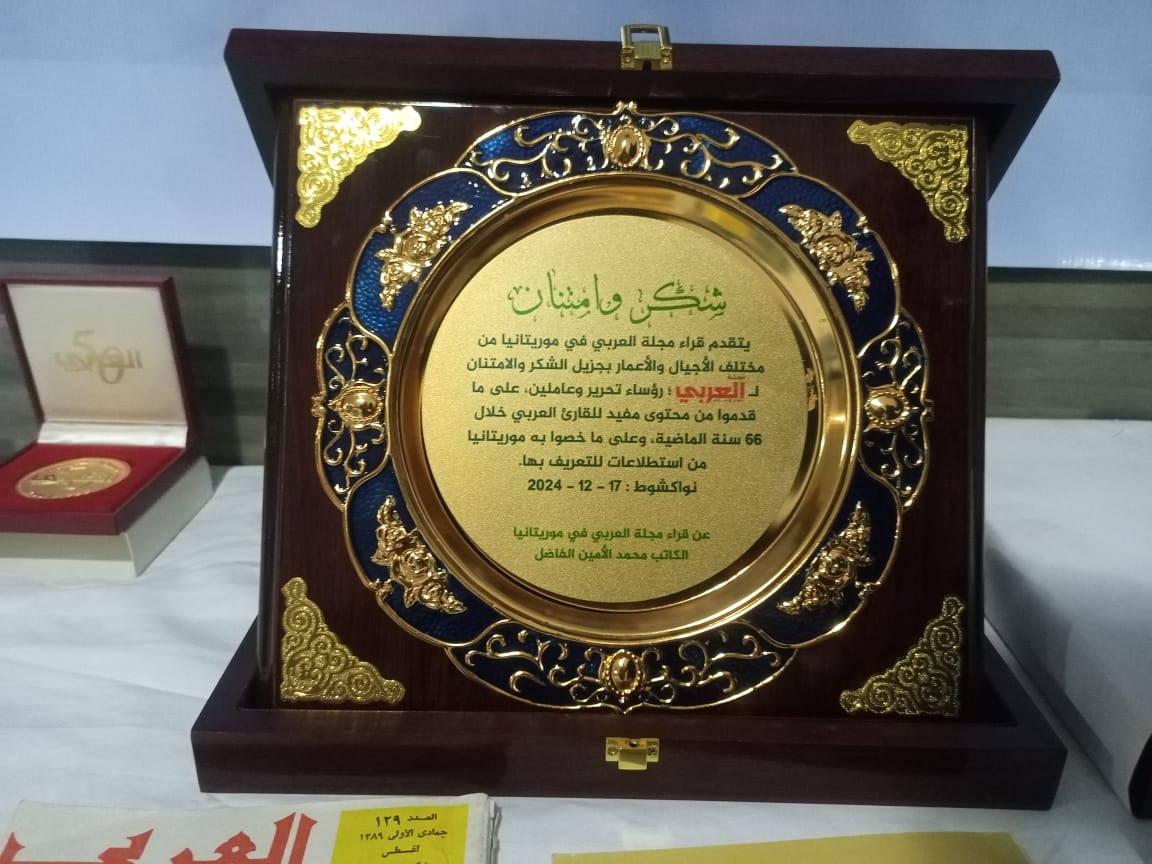 شكر وامتنان
يتقدم قراء مجلة العربي في موريتانيا من
مختلف الأجيال والأعمار بجزيل الشكر والامتنان
لـ العربي ؛ رؤساء تحرير وعاملين، على ما
قدموا من محتوى مفيد للقارئ العربي خلال
66 سنة الماضية، وعلى ما خصوا به موريتانيا
من استطلاعات للتعريف بها.
نواكشوط : 17 - 12 - 2024
عن قراء مجلة العربي في موريتانيا
الكاتب محمد الأمين الفاضل
50
العربي
العربي
العدد ١٢٩
جمادى الأولى ١٣٨٩
اغسطس